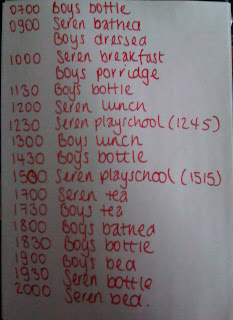 0700 Boys bottle
0900 Seren bathed
Boys dressed
1000 Seren breakfast
Boys porridge
1130 Boys bottle
1200 Seren lunch
1230 Seren playschool (1245)
1300 Boys lunch
1430 Boys bottle
1500 Seren playschool (1515)
1700 Seren tea
1730 Boys tea
1800 Boys bathed
1830 Boys bottle
1900 Boys bed
1930 Seren bottle
2000 Seren bed.